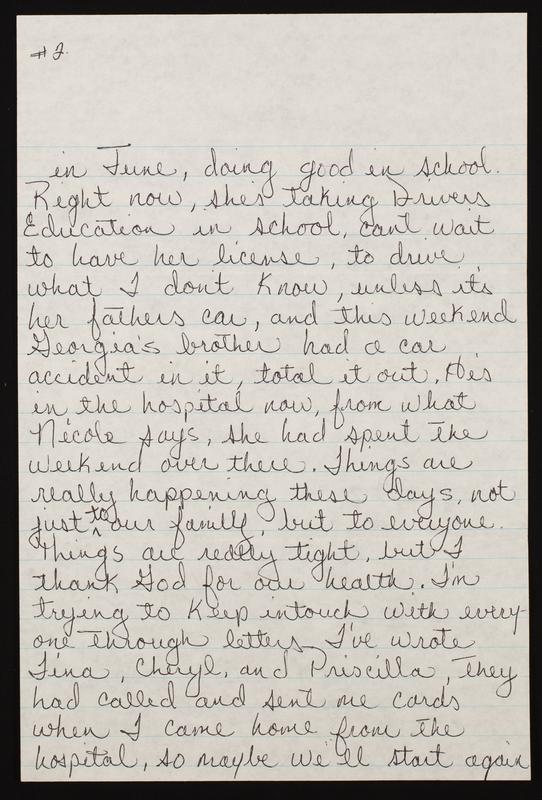 #2.
in June, doing good in school.
Right now, she's taking Drivers
Education in school, can't wait
to have her license, to drive
what I don't know, unless it's
her fathers car, and this weekend
Georgia's brother had a car
accident in it, total it out. He's
in the hospital now, from what
Nicole says, she had spent the
weekend over there. Things are
really happening these days, not
just to our family, but to everyone.
Things are really tight, but I
thank God for our health. I'm
trying to keep intouch with every-
one through letters, I've wrote
Tina, Cheryl, and Priscilla, They
had called and sent me cards
when I came home from the
hospital, so maybe we'll start again